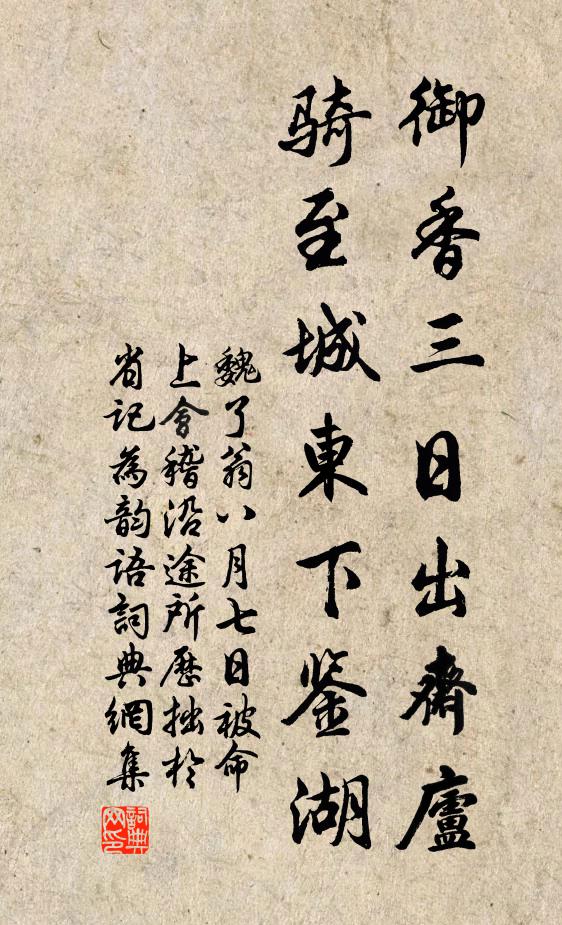 御香三日出齋廬
騎至城東下鉴湖
魏了翁八月七日被命
上會稽沿途所歷拙於
省記為韵語詞典網集
詞典網印